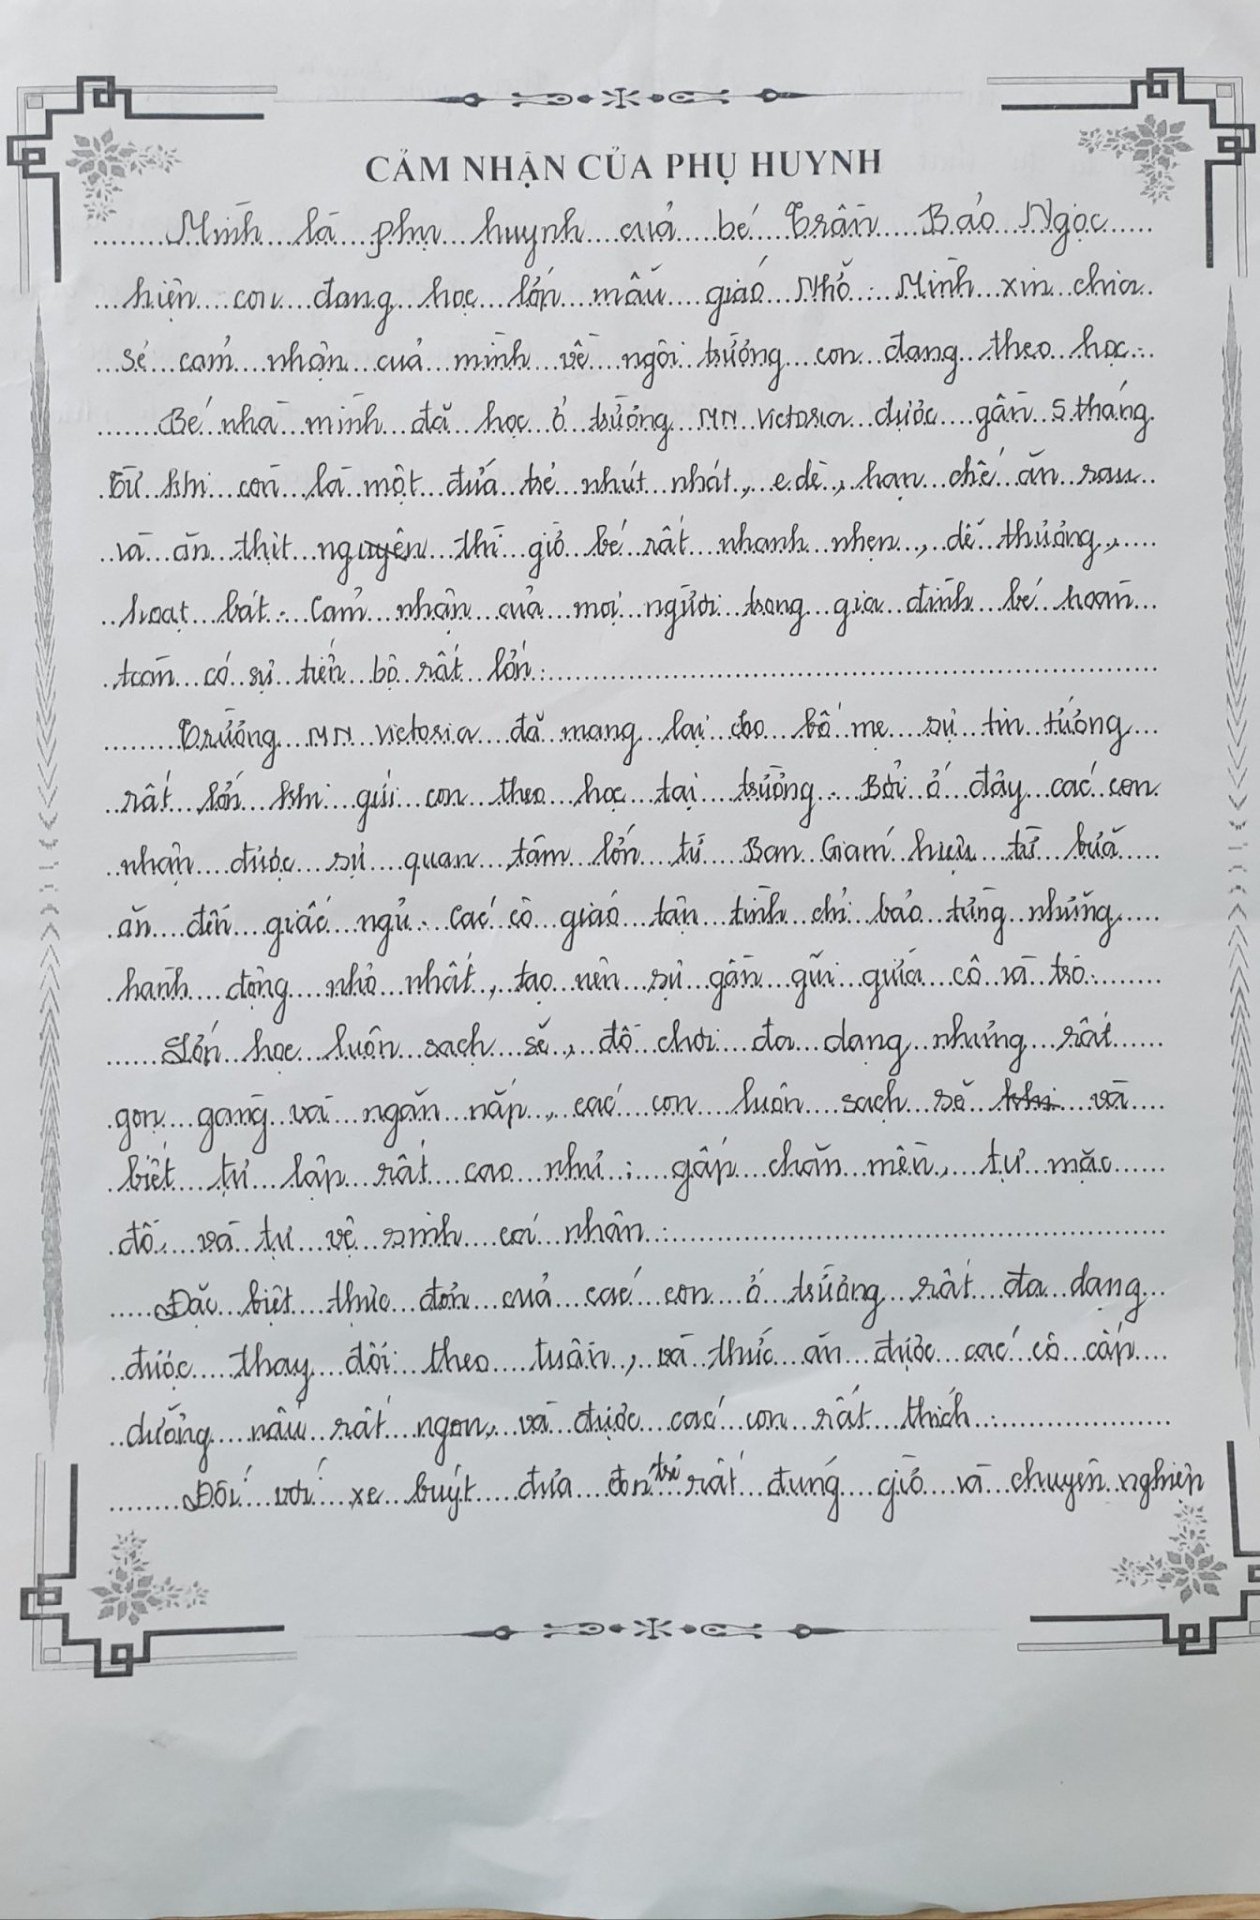 CẢM NHẬN CỦA PHỤ HUYNH
Mình là phụ huynh của bé Trần Bảo Ngọc
hiện con đang học lớp mẫu giáo Nhỡ. Mình xin chia
sẻ cảm nhận của mình về ngôi trường con đang theo học.
Bé nhà mình đã học ở trường MN Victoria được gần 5 tháng.
Từ khi còn là một đứa trẻ nhút nhát, e dè, hạn chế ăn rau
và ăn thịt nguyên thì giờ bé rất nhanh nhẹn, dễ thương,
hoạt bát. Cảm nhận của mọi người trong gia đình bé hoàn
toàn có sự tiến bộ rất lớn.
Trường MN Victoria đã mang lại cho bố mẹ sự tin tưởng
rất lớn khi gửi con theo học tại trường. Bởi ở đây các con
nhận được sự quan tâm lớn từ Ban Giám hiệu từ bữa
ăn đến giấc ngủ. Các cô giáo tận tình chỉ bảo từng những
hành động nhỏ nhất, tạo nên sự gần gũi giữa cô và trò.
Lớp học luôn sạch sẽ, đồ chơi đa dạng nhưng rất
gọn gàng và ngăn nắp, các con luôn sạch sẽ khi và
biết tự lập rất cao như: gấp chăn mền, tự mặc
đồ, và tự vệ sinh cá nhân.
Đặc biệt thực đơn của các con ở trường rất đa dạng
được thay đổi theo tuần, và thức ăn được các cô cấp
dưỡng nấu rất ngon, và được các con rất thích.
Đối với xe buýt đưa đón trẻ rất đúng giờ và chuyên nghiệp